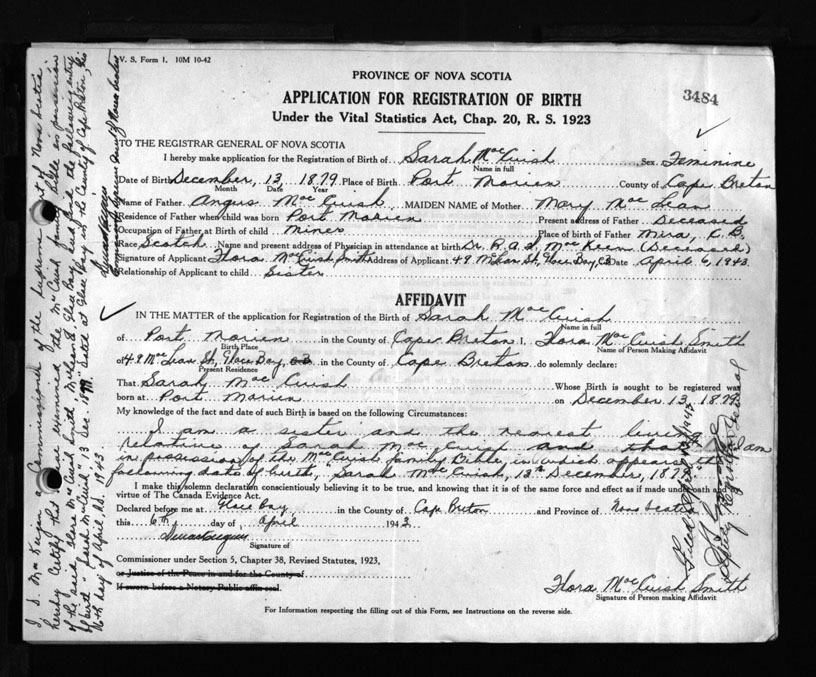 V. S. Form 1. 10M 10-42
PROVINCE OF NOVA SCOTIA
3484
APPLICATION FOR REGISTRATION OF BIRTH
Under the Vital Statistics Act, Chap. 20, R. S. 1923
TO THE REGISTRAR GENERAL OF NOVA SCOTIA
I hereby make application for the Registration of Birth of Sarah MacCuish Sex Feminine
Name in full
Date of Birth December, 13 1879 Place of Birth Port Morien County of Cape Breton
Month Date Year
Name of Father Angus MacCuish MAIDEN NAME of Mother Mary MacLean
Residence of Father when child was born Port Morien Present address of Father Deceased
Occupation of Father at Birth of child Miner Place of birth of Father Mira, C.B.
Race Scotch Name and present address of Physician in attendance at birth Dr. R.A.H. MacKeen (Deceased)
Signature of Applicant Flora MacCuish Smith Address of Applicant 49 McLean St, Glace Bay, CB Date April 6, 1943
Relationship of Applicant to child Sister
AFFIDAVIT
IN THE MATTER of the application for Registration of the Birth of Sarah MacCuish
Name in full
of Port Morien in the County of Cape Breton I, Flora MacCuish Smith
Birth Place Name of Person Making Affidavit
of 49 McLean St, Glace Bay, CB in the County of Cape Breton do solemnly declare:
Present Residence
That Sarah MacCuish Whose Birth is sought to be registered was
born at Port Morien on December 13, 1879
My knowledge of the fact and date of such Birth is based on the following Circumstances:
I am a sister and the nearest living
relative of Sarah MacCuish and that I am
in possession of the MacCuish family Bible, in which appears the
following date of birth, "Sarah MacCuish, 13th December, 1879"
I make this solemn declaration conscientiously believing it to be true, and knowing that it is of the same force and effect as if made under oath and
virtue of The Canada Evidence Act.
Declared before me at Glace Bay in the County of Cape Breton and Province of Nova Scotia
this 6th day of April 1943
Signature of
Commissioner under Section 5, Chapter 38, Revised Statutes, 1923,
or Justice of the Peace in and for the County of
If sworn before a Notary Public affix seal.
Flora MacCuish Smith
Signature of Person making Affidavit
For Information respecting the filling out of this Form, see Instructions on the reverse side.
I, a Commissioner of the Supreme Court of Nova Scotia
hereby certify that I have examined the McCuish family Bible in possession
of the said Flora McCuish Smith, McLean St. Glace Bay and find the following entry
of birth "Sarah McCuish" 13 Dec. 1879" Dated at Glace Bay in the County of Cape Breton, this
6th day of April A.D. 1943
Commissioner Supreme Court of Nova Scotia